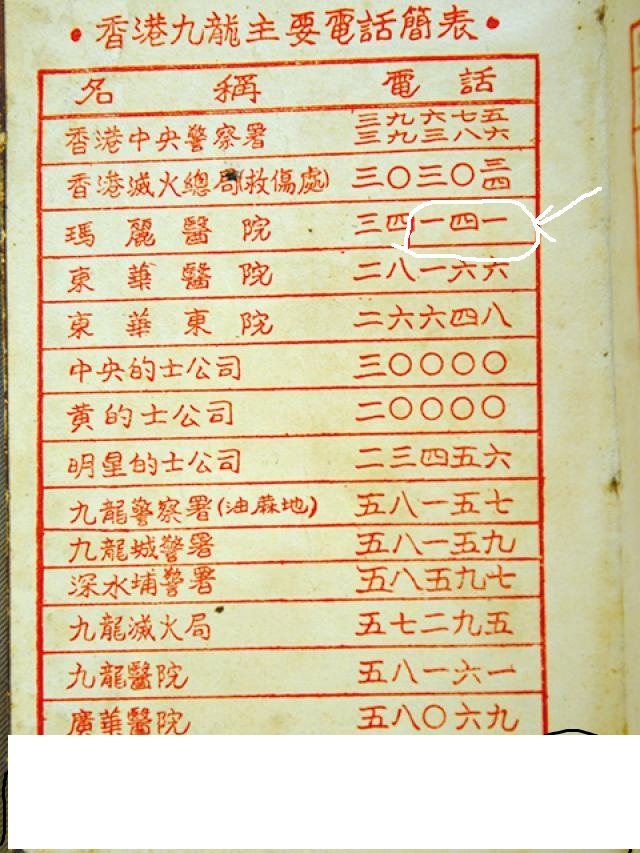 •香港九龍主要電話簡表•
名稱 電話
香港中央警察署 三九六七五
三九三八六
香港滅火總局(救傷處) 三〇三〇三
四
瑪麗醫院 三四一四一
東華醫院 二八一六六
東華東院 二六六四八
中央的士公司 三〇〇〇〇
黄的士公司 二〇〇〇〇
明星的士公司 二三四五六
九龍警察署(油蔴地) 五八一五七
九龍城警署 五八一五九
深水埔警署 五八五九七
九龍滅火局 五七二九五
九龍醫院 五八一六一
廣華醫院 五八〇六九